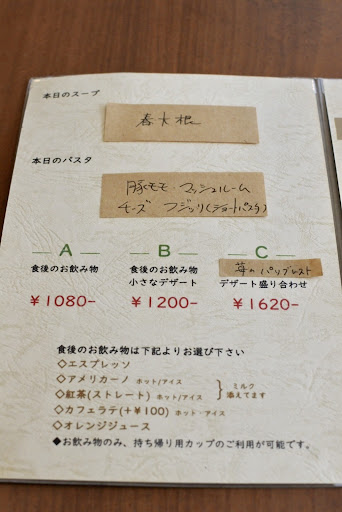 本日のスープ
春大根
本日のパスタ
豚モモ・マッシュルーム
チーズ フジッリ(ショートパスタ)
A B C
食後のお飲み物 食後のお飲み物 苺のパリブレスト
小さなデザート デザート盛り合わせ
¥1080- ¥1200- ¥1620-
食後のお飲み物は下記よりお選び下さい
◇エスプレッソ
◇アメリカーノ ホット/アイス
◇紅茶(ストレート) ホット/アイス } ミルク添えてます
◇カフェラテ(+¥100) ホット・アイス
◇オレンジジュース
◆お飲み物のみ、持ち帰り用カップのご利用が可能です。